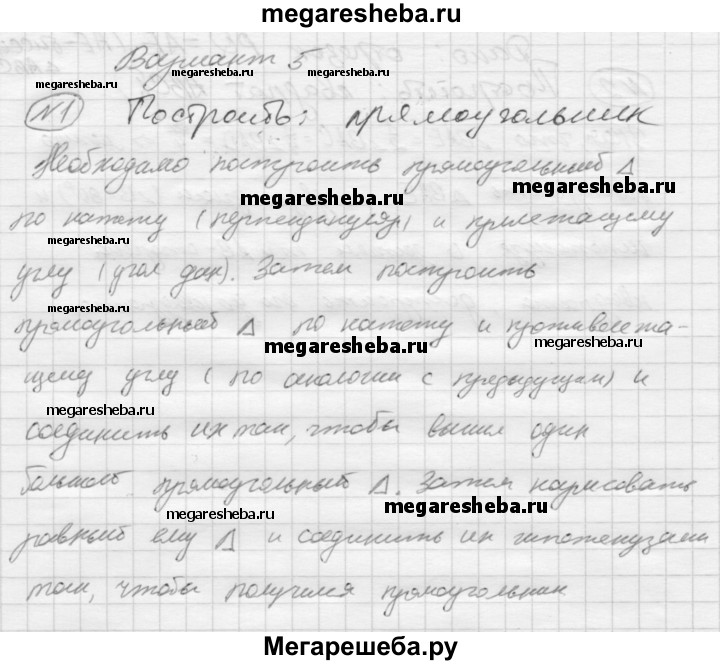 megaresheba.ru
Вариант 5
megaresheba.ru megaresheba.ru megaresheba.ru
№1 Построить: прямоугольник
Необходимо построить прямоугольный Δ
megaresheba.ru megaresheba.ru
по катету (перпендикуляр) и прилежащему
megaresheba.ru
углу (угол дан). Затем построить
megaresheba.ru
прямоугольный Δ по катету и противолежа-
megaresheba.ru megaresheba.ru
щему углу (по аналогии с предыдущим) и
megaresheba.ru
соединить их так, чтобы вышел один
большой прямоугольный Δ. Затем нарисовать
megaresheba.ru megaresheba.ru
равный ему Δ и соединить их гипотенузами
так, чтобы получился прямоугольник
Мегарешеба.ру